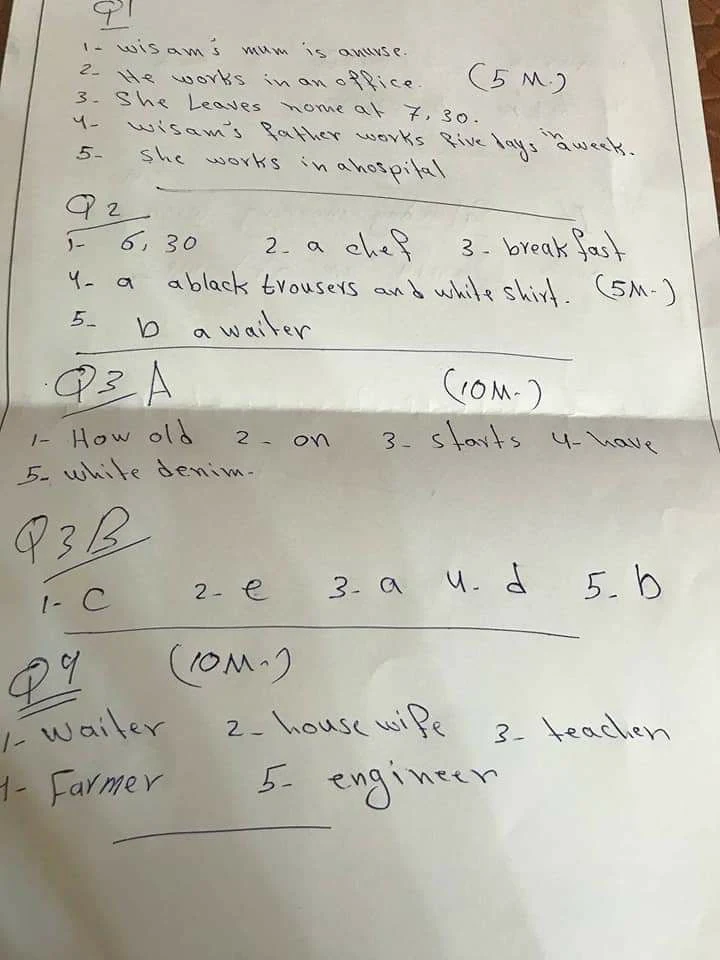 Q1
1- wisam's mum is anurse.
2- He works in an office. (5 M.)
3- She Leaves home at 7,30.
4- wisam's father works five days in aweek.
5- She works in ahospital
Q2
1- 6,30 2- a chef 3- breakfast
4- a ablack trousers and white shirt. (5M.)
5- b a waiter
Q3 A (10M.)
1- How old 2- on 3- starts 4- have
5- white denim.
Q3B
1- C 2- e 3- a 4- d 5- b
Q4 (10M.)
1- Waiter 2- house wife 3- teacher
4- Farmer 5- engineer